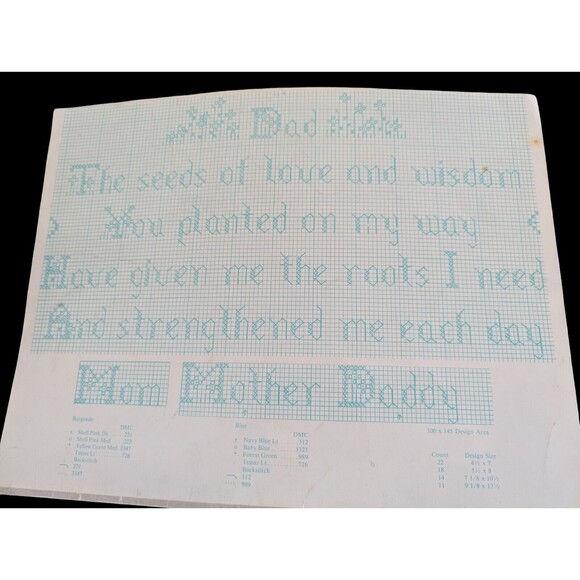 Dad
The seeds of love and wisdom
You planted on my way
Have given me the roots I need
And strengthened me each day
Mom Mother Daddy
Burgundy Blue 100 x 145 Design Area
DMC DMC Count Design Size
Shell Pink Dk 221 Navy Blue Lt 312 22
Shell Pink Med 223 Baby Blue 3325 18
Yellow Green Med 3347 Forest Green 989 14
Topaz Lt 726 Topaz Lt 726 11
Backstitch Backstitch
221 312
3347 988